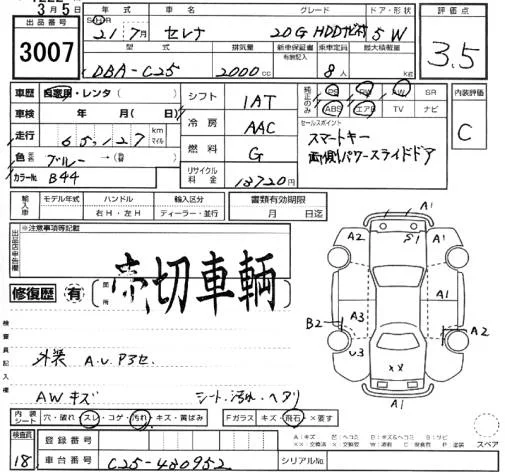 3月5
年式 車名 グレード ドア・形状 評価点
出品番号
S・H・R 21 7月 セレナ 20G HDDナビｻﾞ 5W
3007
型式 排気量 新車保証書 乗車定員 最大積載量
有説記入
3.5
DBA-C25 2000cc 8人 kg
車歴 自家用・レンタ( ) シフト 1AT 純正のみ PS PW AW SR 内装評価
ABS エアB TV ナビ
車検 年 月( 日) 冷房 AAC セールスポイント C
走行 65,127 km マイル スマートキー
両側パワースライドドア
色 ブルー→(替 ) 燃料 G
カラーNo. B44 リサイクル料金 13720円
輸入車 モデル年式 ハンドル 輸入区分 書類有効期限
右H・左H ディーラー・並行 月 日迄
出品店申告欄 ※注意事項等記載
売切車輌
修復歴 有 箇所
検査員記入欄
外装 A.U.P3セ.
AWキズ シート.汚れ.ヘタリ
A1
A2 S1 A1
A1
B2 A3 A1 A2
U3
××
A1
内装シート 穴・破れ・スレ・コゲ・汚れ・キズ・黄ばみ Fガラス キズ・飛石・×要す
A:キズ E:ヘコミ B:キズ&ヘコミ S:サビ
スペア
検査員 登録番号
18 車台番号 C25-480952 シリアルNo.